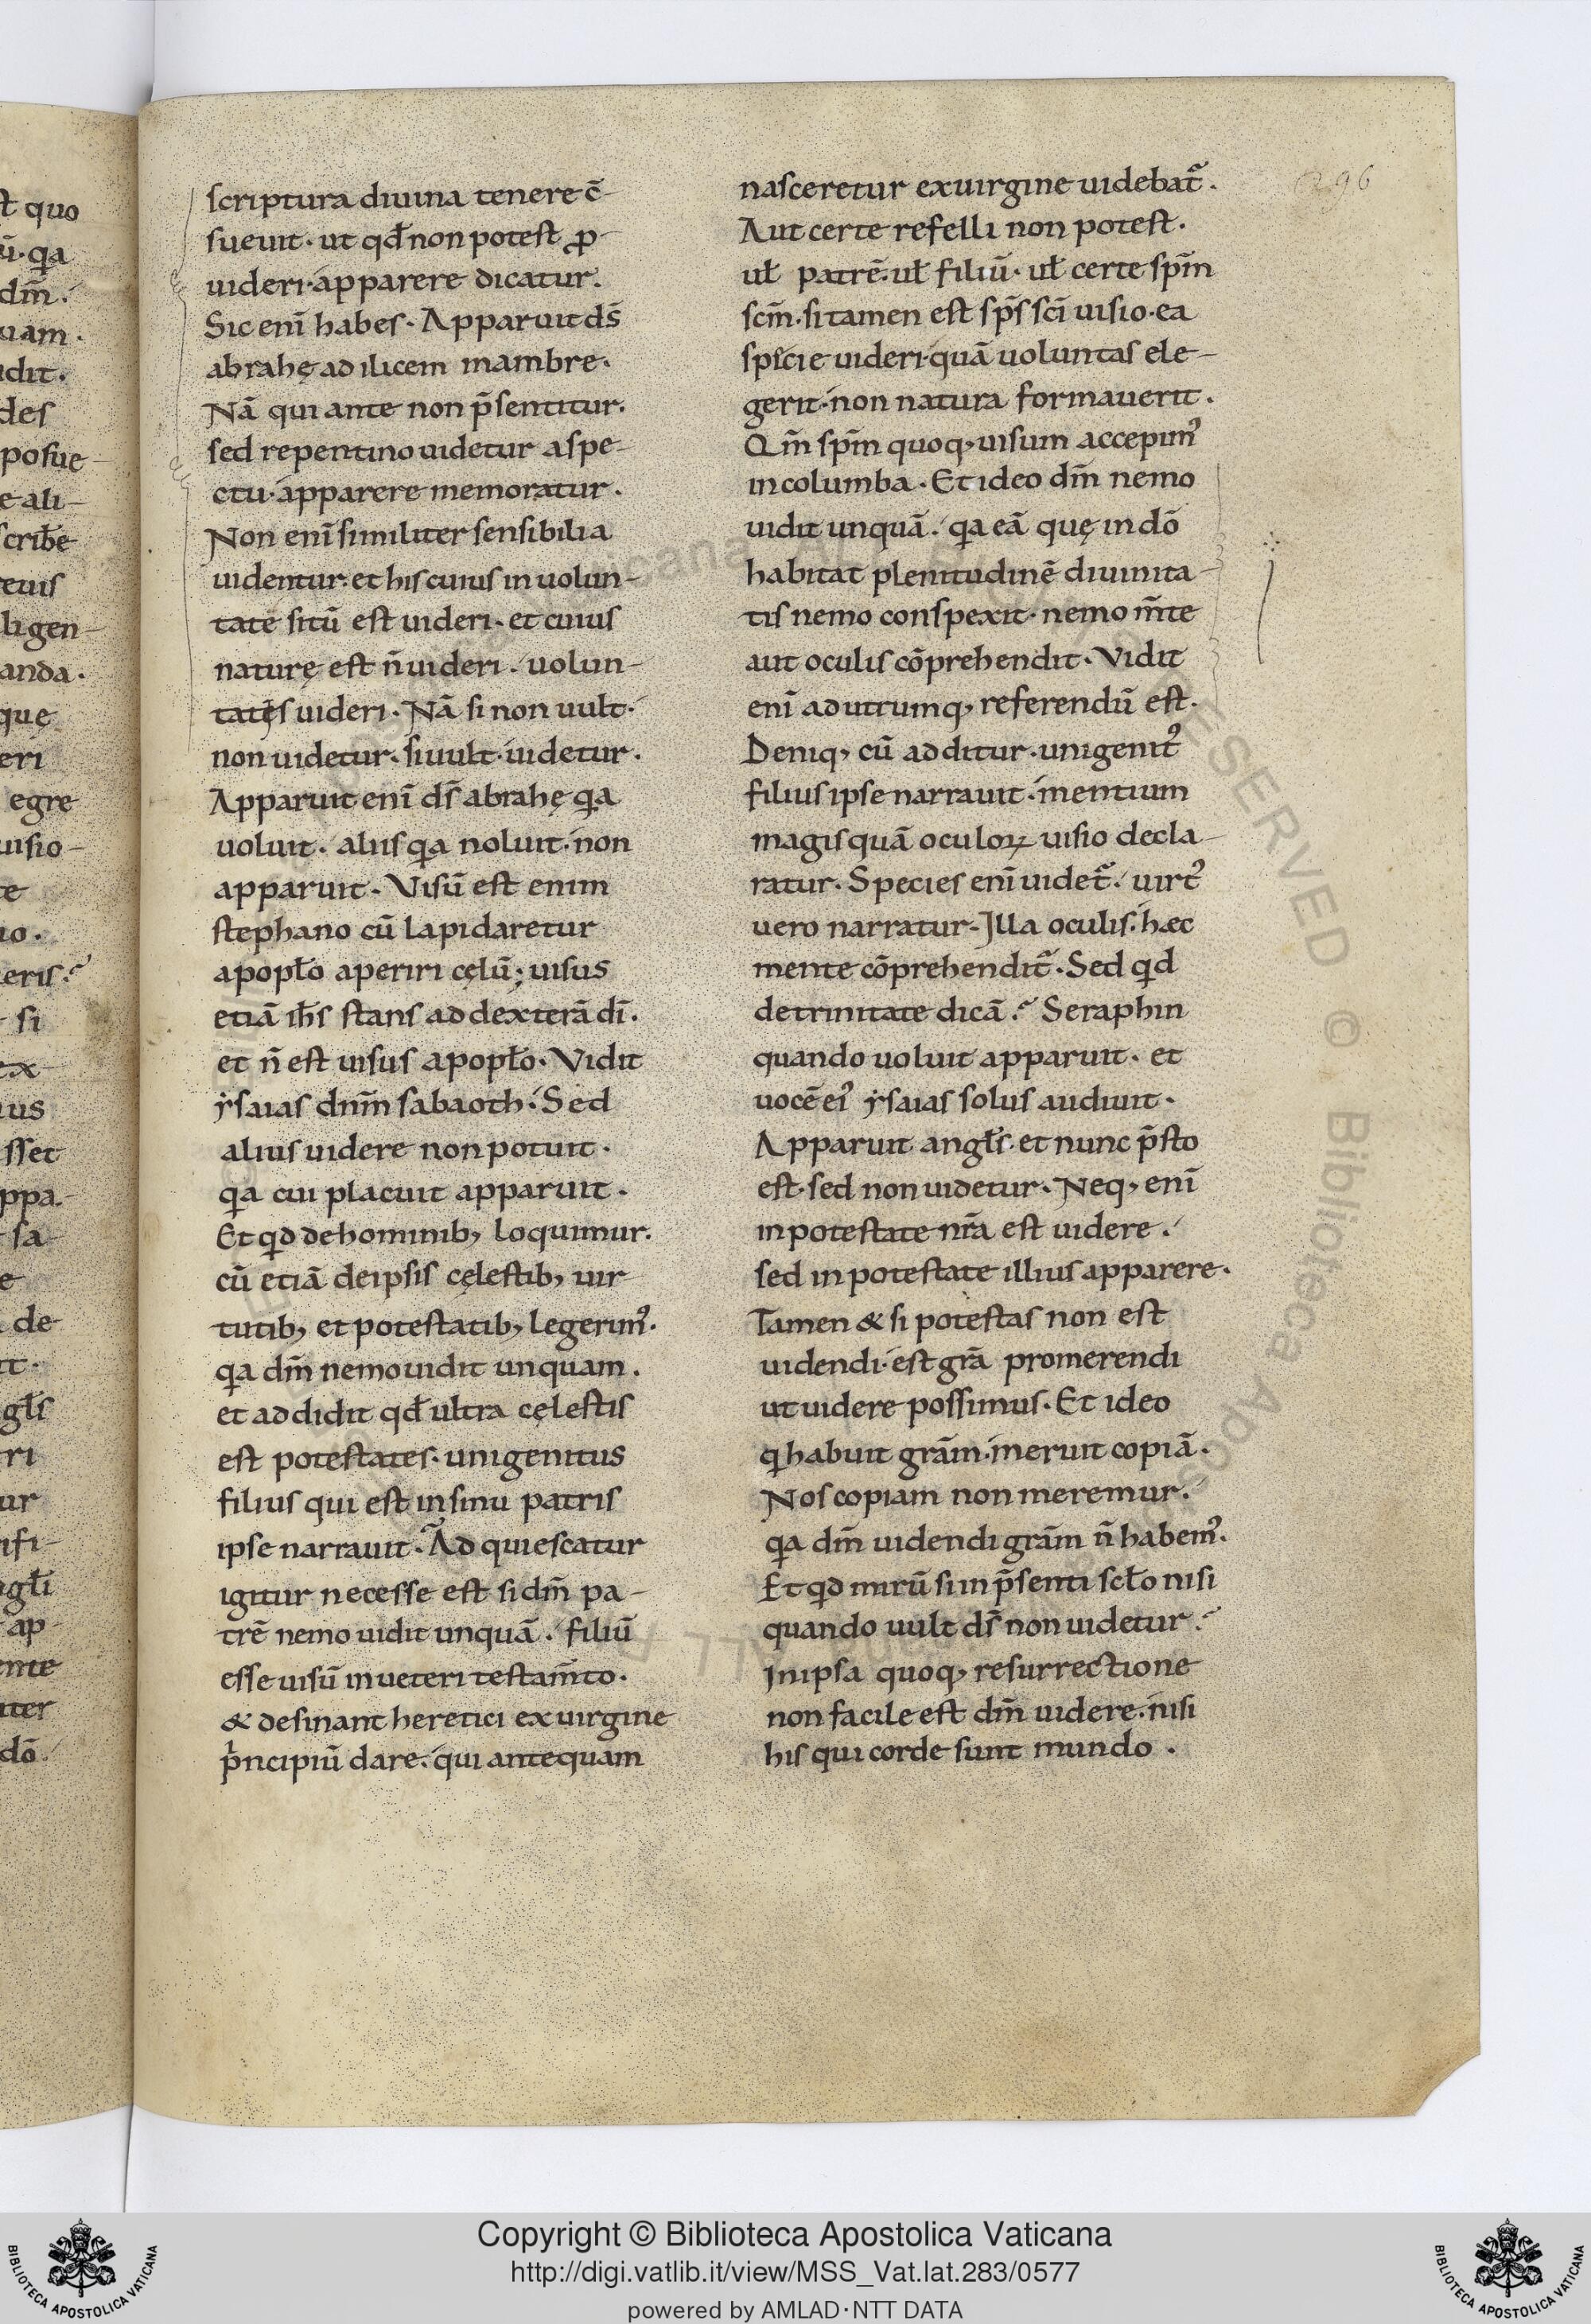 scriptura diuina tenere c̄-
sueuit· ut qđ non potest ꝓ-
uideri· apparere dicatur.
Sic enī habes· Apparuit ds̄
abrahę ad ilicem mambre·
Nā qui ante non p̄sentitur·
sed repentino uidetur aspe-
ctu· apparere memoratur.
Non enī similiter sensibilia
uidentur· et his cuius in uolun-
tate sitū est uideri· et cuius
naturę est n̄ uideri· uolun-
tatis uideri· Nā si non uult·
non uidetur· si uult· uidetur·
Apparuit enī ds̄ abrahę qa
uoluit· aliis qa noluit· non
apparuit· Visū est enim
stephano cū lapidaretur
a popło aperiri cęlū; uisus
etiā ih̄s stans ad dexterā dī·
et n̄ est uisus a popło· Vidit
ẏsaias dnm̄ sabaoth· Sed
alius uidere non potuit·
qa cui placuit apparuit·
Et qd de hominib; loquimur·
cū etiā de ipsis cęlestib; uir
tutib; et potestatib; legerimꝰ·
qa dm̄ nemo uidit unquam.
et addidit qđ ultra cęlestis
est potestates· unigenitus
filius qui est in sinu patris
ipse narrauit· Ad quiescatur
igitur necesse est si dm̄ pa-
trē nemo uidit unquā· filiū
esse uisū in ueteri testam̄to·
& desinant heretici ex uirgine
pͥncipiū dare· qui antequam
296
nasceretur ex uirgine uidebat᷑.
Aut certe refelli non potest·
uł patrē· uł filiū· uł certe spm̄
scm̄· si tamen est sps̄ scī uisio· ea
specie uideri· quā uoluntas ele-
gerit· non natura formauerit.
Qm̄ spm̄ quoq; uisum accepimꝰ
in columba· Et ideo dm̄ nemo
uidit unquā· qa eā quę in dō
habitat plenitudinē diuinita-
tis nemo conspexit· nemo m̄te
aut oculis cōprehendit· Vidit
enī ad utrumq; referendū est·
Deniq; cū additur· unigenitꝰ
filius ipse narrauit· mentium
magis quā oculoꝝ uisio decla-
ratur· Species enī uidet᷑· uirtꝰ
uero narratur· Illa oculis· hæc
mente cōprehendit᷑· Sed qd
de trinitate dicā? Seraphin
quando uoluit apparuit· et
uocē eiꝰ ẏsaias solus audiuit·
Apparuit angłs· et nunc p̄sto
est· sed non uidetur· Neq; enī
in potestate nr̄a est uidere·
sed in potestate illius apparere·
Tamen & si potestas non est
uidendi· est gr̄a promerendi
ut uidere possimus· Et ideo
q habuit grām· meruit copiā·
Nos copiam non meremur·
qa dm̄ uidendi grām n̄ habemꝰ·
Et qd mirū si in p̄senti scło nisi
quando uult ds̄ non uidetur?
In ipsa quoq; resurrectione
non facile est dm̄ uidere· nisi
his qui corde sunt mundo ·
Copyright © Biblioteca Apostolica Vaticana
http://digi.vatlib.it/view/MSS_Vat.lat.283/0577
powered by AMLAD·NTT DATA